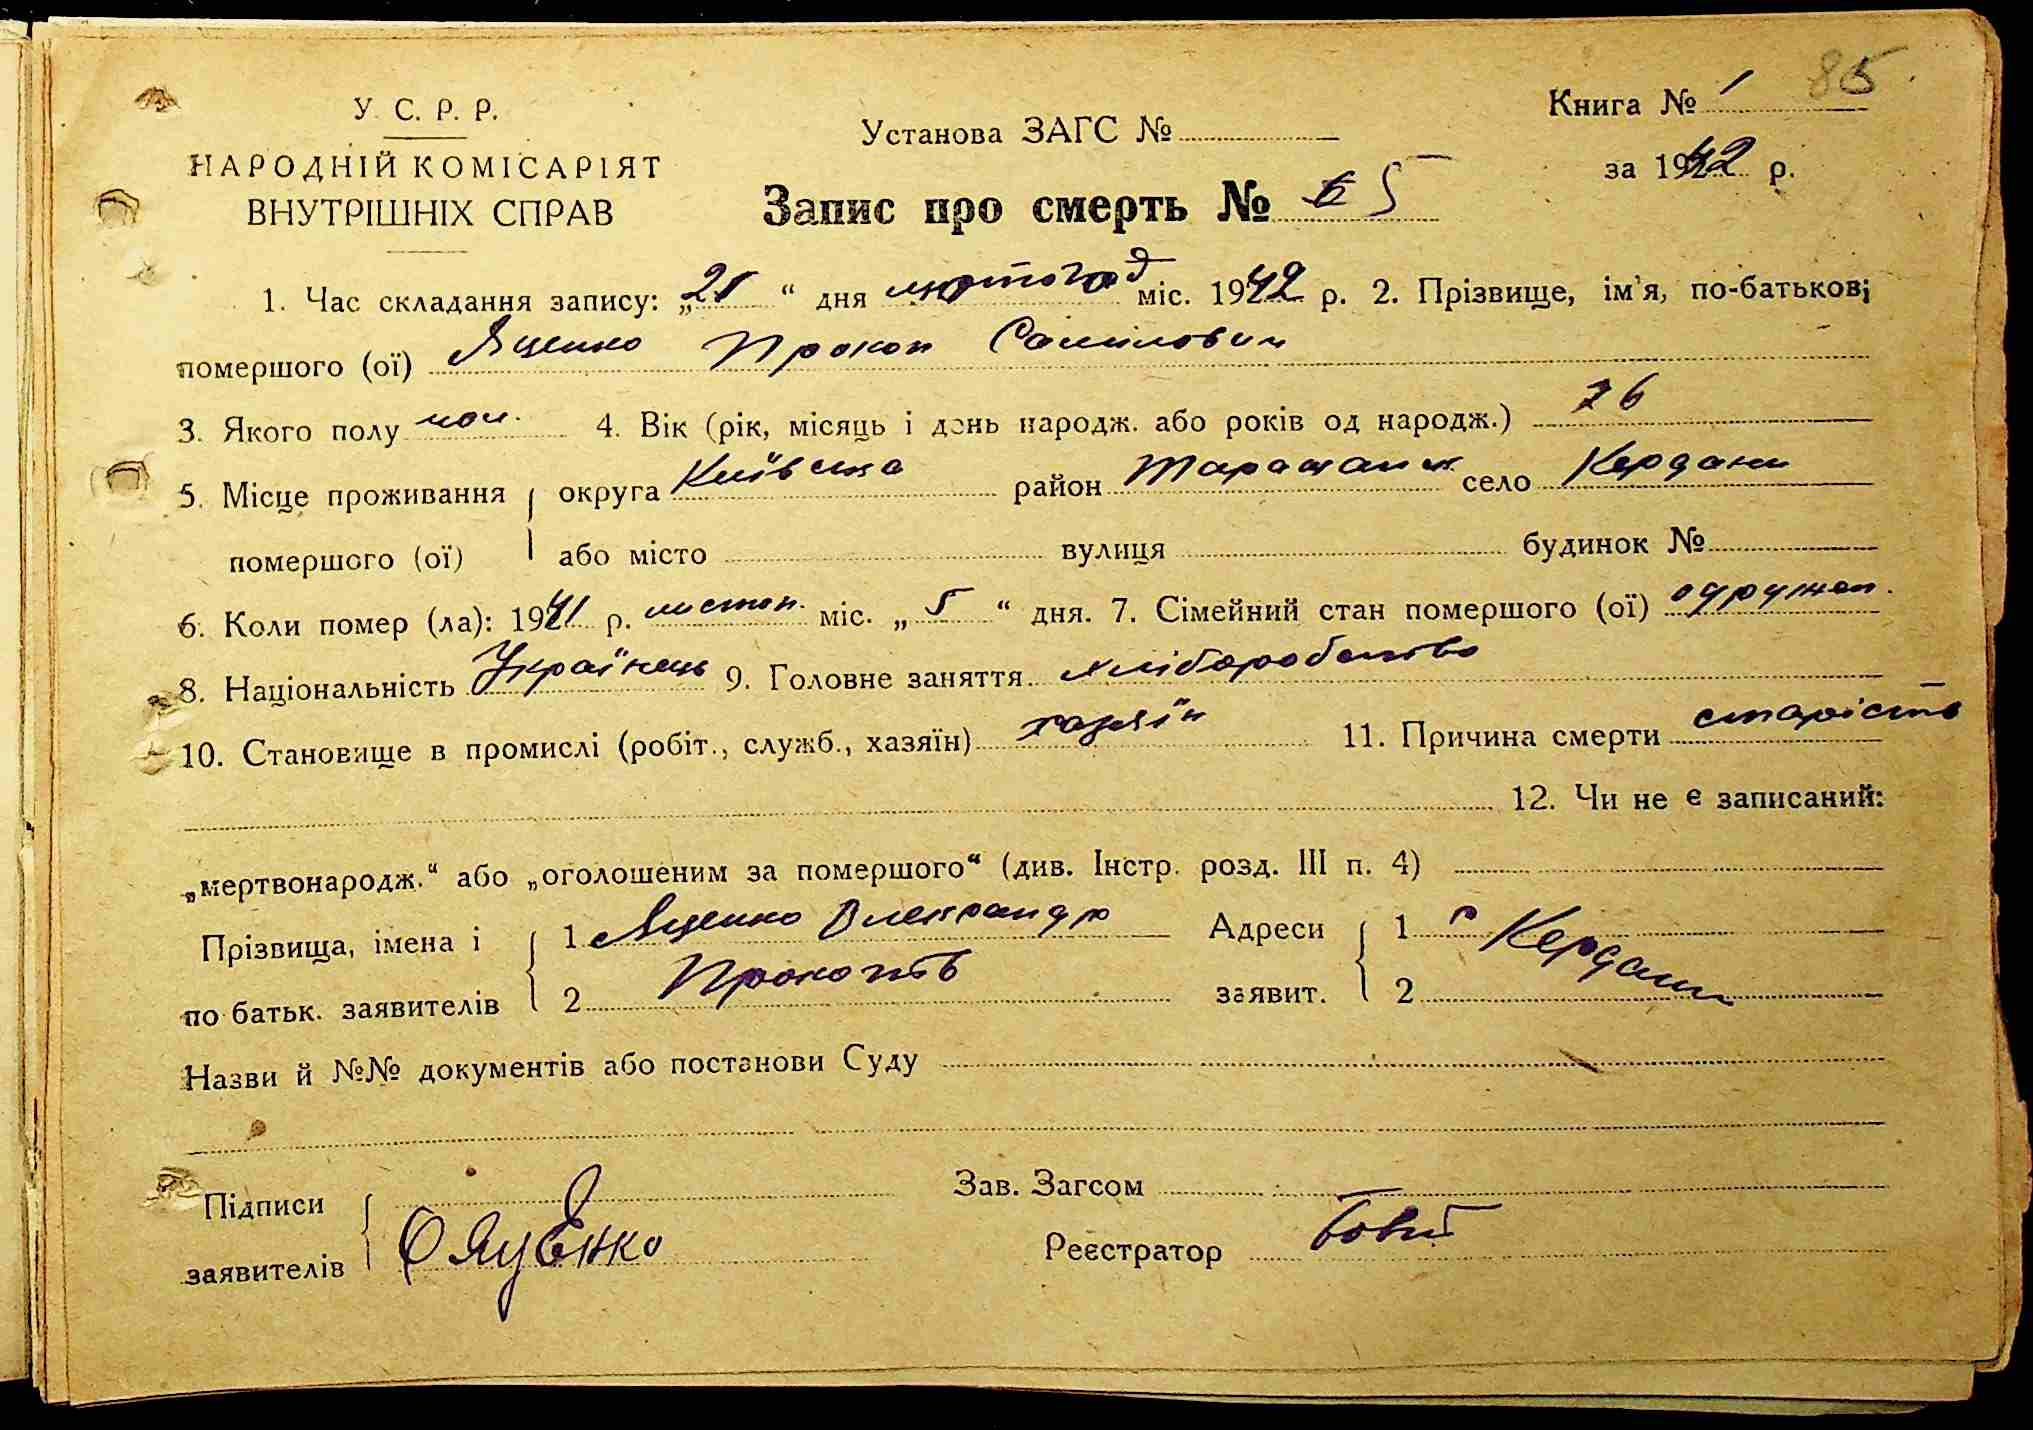 85
У. С. Р. Р.
НАРОДНІЙ КОМІСАРІЯТ
ВНУТРІШНІХ СПРАВ
Установа ЗАГС №
Книга № 1
за 1942 р.
Запис про смерть № 5
1. Час складання запису: „21“ дня лютого міс. 1942 р. 2. Прізвище, ім'я, по-батькові
помершого (ої) Яценко Прокоп Самилович
3. Якого полу чол. 4. Вік (рік, місяць і день народж. або років од народж.) 76
5. Місце проживання округа Київська район Таращанск село Кердани
помершого (ої) або місто вулиця будинок №
6. Коли помер (ла): 1941 р. листоп. міс. „5“ дня. 7. Сімейний стан помершого (ої) одружен.
8. Національність Українець 9. Головне заняття хліборобство
10. Становище в промислі (робіт., служб., хазяїн) хазяїн 11. Причина смерти старість
12. Чи не є записаний:
„мертвонародж.“ або „оголошеним за помершого“ (див. Інстр. розд. III п. 4)
Прізвища, імена і 1 Яценко Олександр Адреси 1 Кердани
по батьк. заявителів 2 Прокопів заявит. 2
Назви й №№ документів або постанови Суду
Зав. Загсом
Підписи
О Яценко
заявителів
Реєстратор